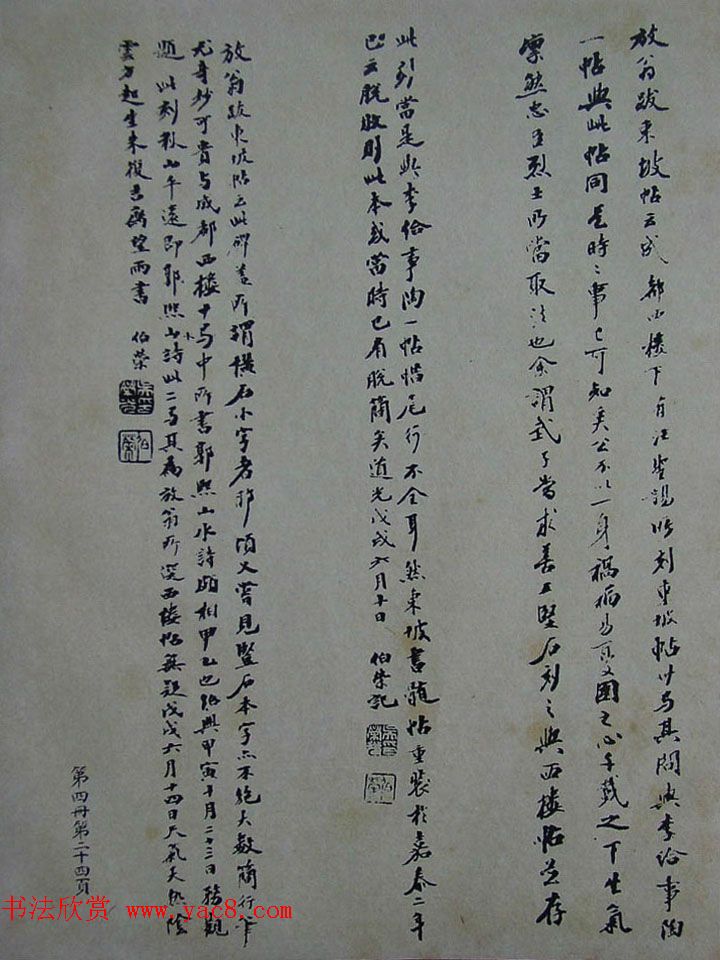 放翁跋東坡帖云成都西樓下有汪聖錫所刻東坡帖卅弓其間與李給事陶
一帖與此帖同是時之事已可知矣公不以一身禍福易憂國之心千載之下生氣
凜然忠臣烈士所當取法也余謂武子當求善工堅石刻之與西樓帖並存
此引當是與李給事陶一帖惜尾行不全耳然東坡書髓帖重裝於嘉泰二年
已云脫敗則此本或當時已有脫簡矣道光戊戌六月十日 伯榮記
放翁跋東坡帖云此碑蓋所謂橫石小字者耶頃又嘗見豎石本字亦不絕大數簡行筆
尤奇妙可貴与成都西樓十弓中所書郭熙山水詩頗相甲乙也紹興甲寅十月二十三日務觀
題 此刻秋山平遠即郭熙山水詩此二弓其為放翁所泛西樓帖無疑戊戌六月十四日天氣大熱陰
雲方起生未復書為望雨書 伯榮
第四冊第二十四頁
书法欣赏 www.yac8.com